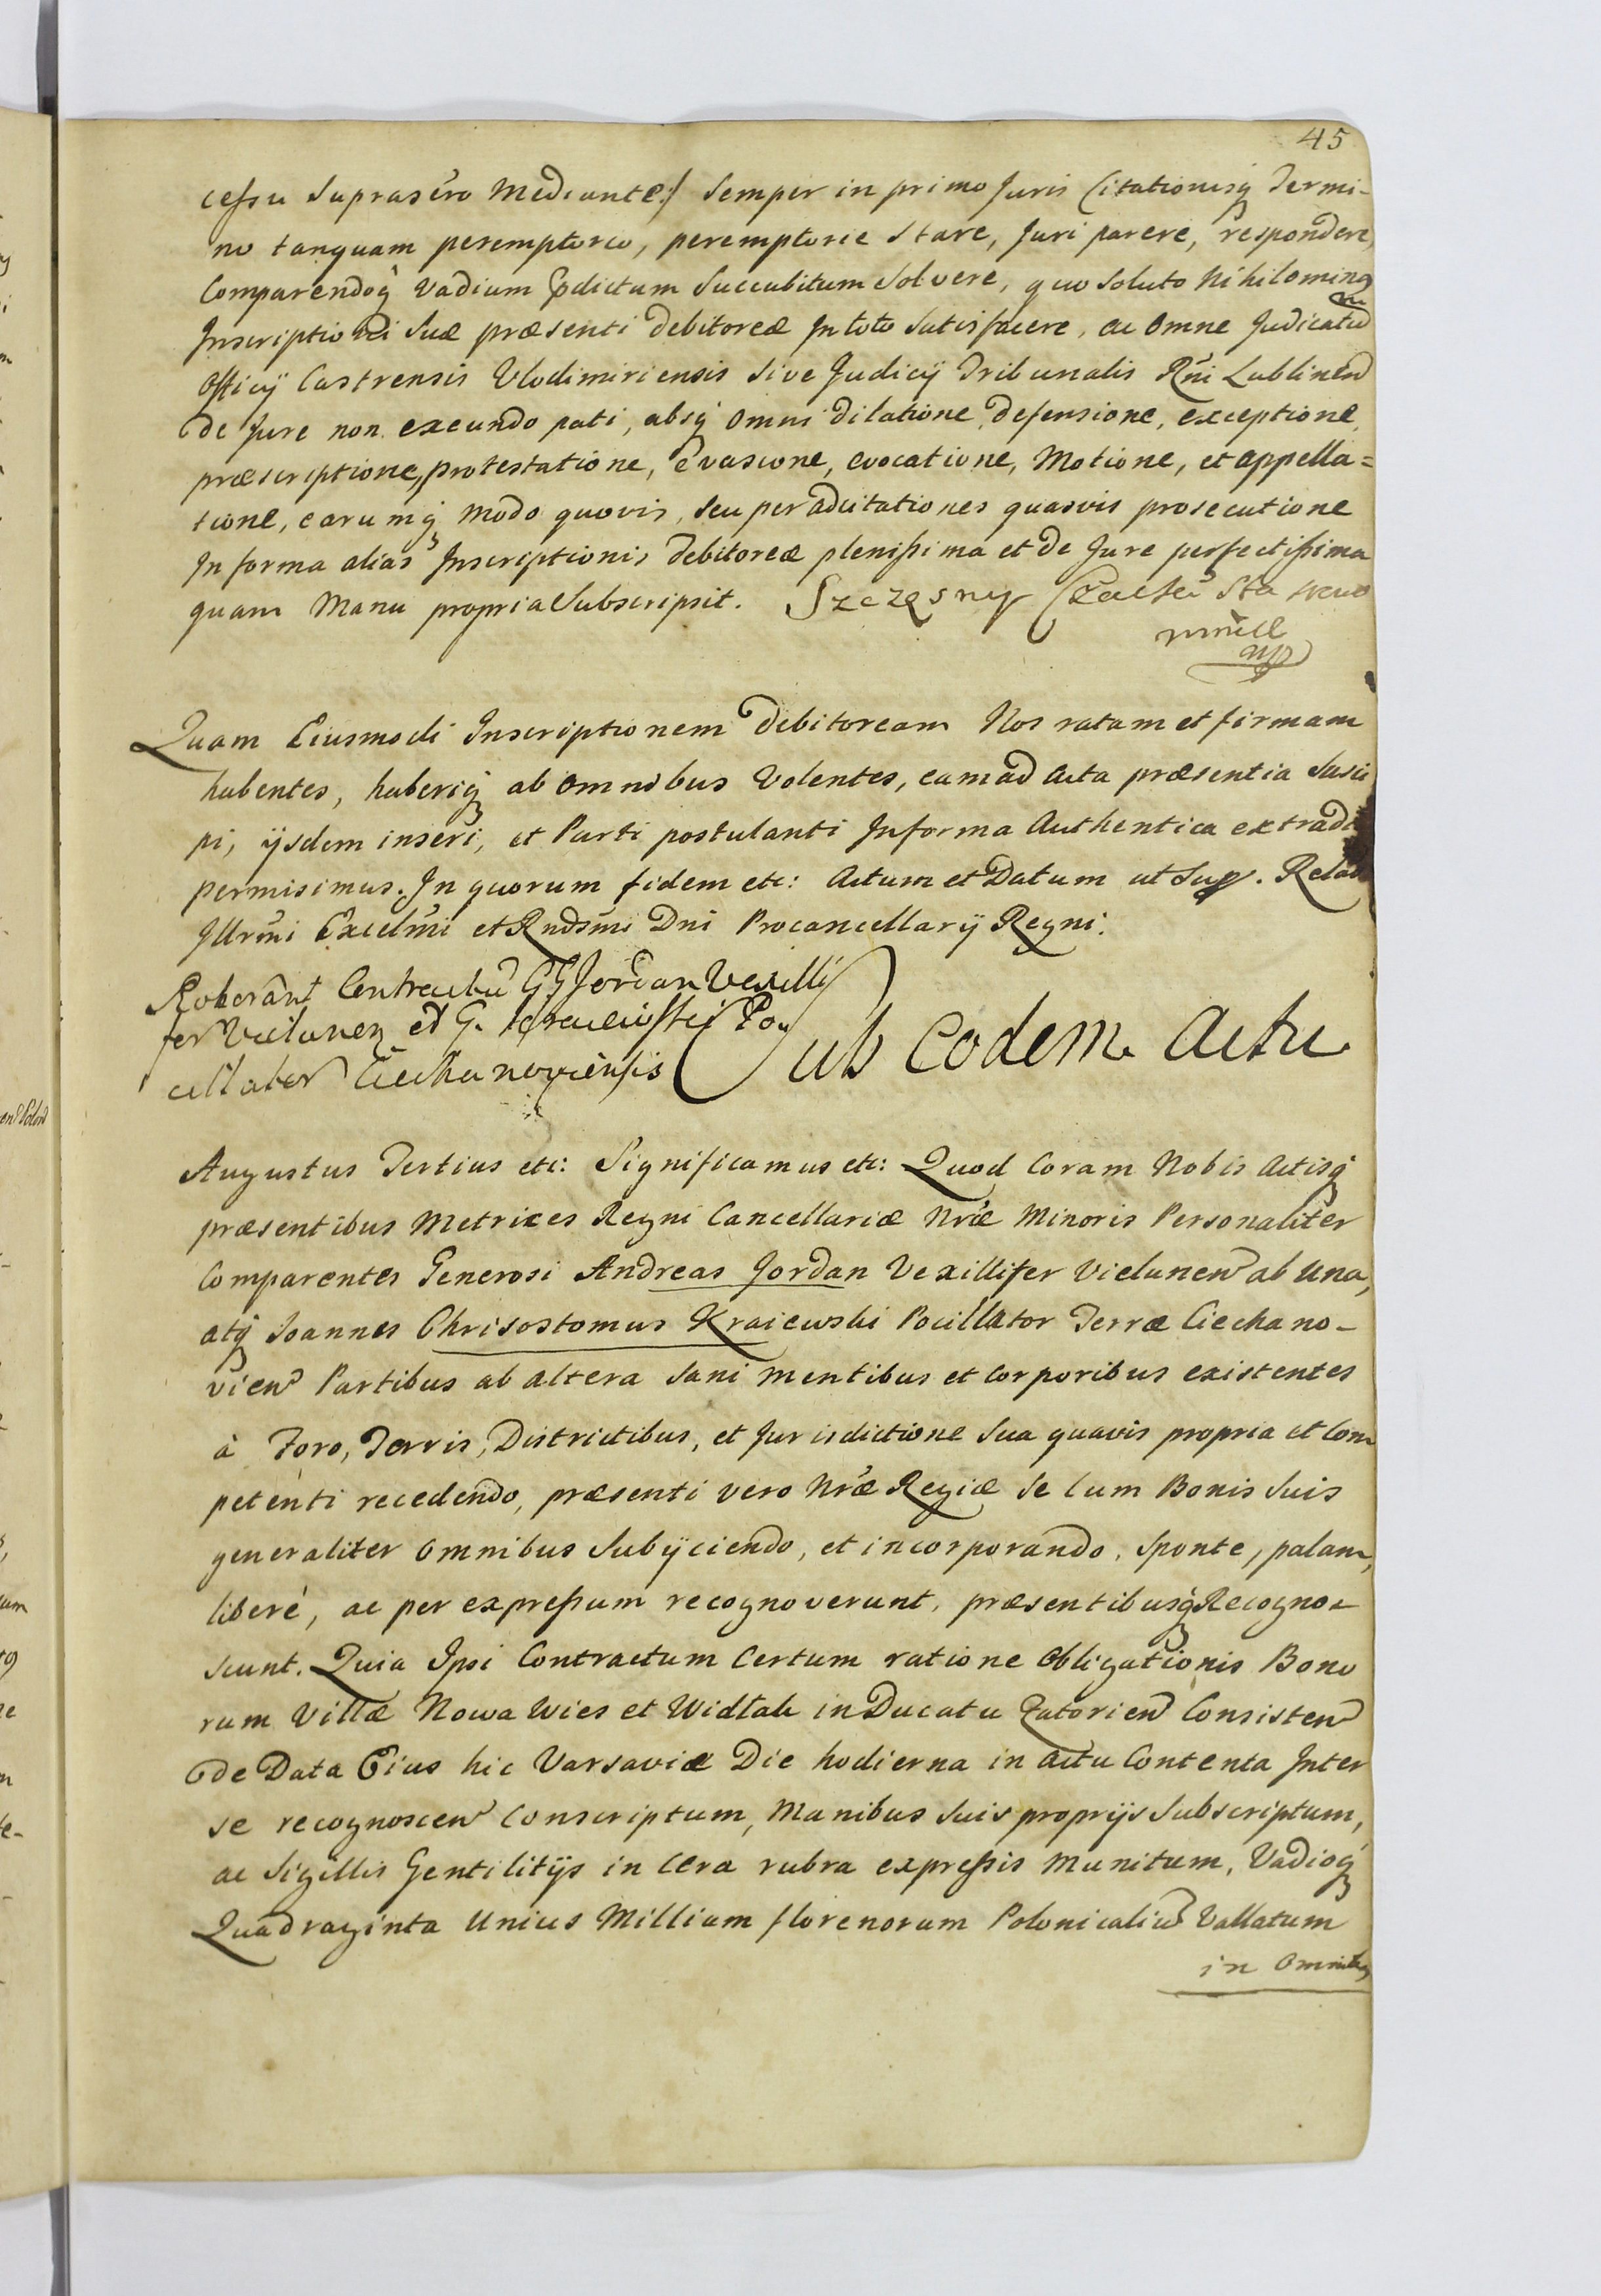 45
cessu suprascro Mediante:/ Semper in primo Juris Citationisq Termi-
no tanquam peremptorio, peremptorie Stare, Juri parere, respondere,
Comparendoq Vadium pdictum Succubitum Solvere, quo Soluto Nihilominq
Inscriptioni Suæ præsenti debitoreæ In toto Satisfacere, ac Omne Judicatu
Officij Castrensis Vlodimiriensis Sive Judicij Tribunalis Rni Lublinen
de Jure non exeundo pati, absq Omni dilatione, defensione, exceptione,
præscriptione, protestatione, evasione, evocatione, Motione, et appella=
tione, earumq modo quovis, Seu per adcitationes quasvis prosecutione
In forma alias Inscriptionis debitoreæ plenissima et de Jure perfectissima
quam Manu propria Subscripsit. Szczęsny Czacki
mp
Quam Eiusmodi Inscriptionem debitoream Nos ratam et firmam
habentes, haberiq ab Omnibus Volentes, eam ad Acta præsentia Susci
pi, ijsdem inseri, et Parti postulanti In forma Authentica extradi
permisimus. In quorum fidem etc: Actum et Datum ut Sup. Relat
Illrmi Excelmi et Rndsmi Dni Procancellarij Regni.
Roborant Contractu GG Jordan Vexilli
fer Vielunen et G. Kraiewski Po
cillator Ciechanoviensis
Sub Eodem Actu
Augustus Tertius etc: Significamus etc: Quod Coram Nobis Actisq
præsentibus Metrices Regni Cancellariæ Nræ Minoris Personaliter
Comparentes Generosi Andreas Jordan Vexillifer Vielunen ab Una,
atq Joannes Chrisostomus Kraiewski Pocillator Terræ Ciechano-
vien Partibus ab altera Sani mentibus et Corporibus existentes
à Foro, Terris, Districtibus, et Jurisdictione Sua quavis propria et Com
petenti recedendo, præsenti vero Nræ Regiæ Se Cum Bonis Suis
generaliter Omnibus Subijciendo, et incorporando, Sponte, palam,
liberè, ac per expressum recognoverunt, præsentibusq Recogno-
scunt. Quia Ipsi Contractum Certum ratione Obligationis Bono
rum Villæ Nowa Wies et Widłak in Ducatu Zatorien Consisten
de Data Eius hic Varsaviæ Die hodierna in Actu Contenta Inter
se recognoscen Conscriptum, Manibus Suis proprijs Subscriptum,
ac Sigillis Gentilitijs in Cera rubra expressis munitum, Vadioq
Quadraginta Unius Millium florenorum Polonicaliu Vallatum
in Omnibq